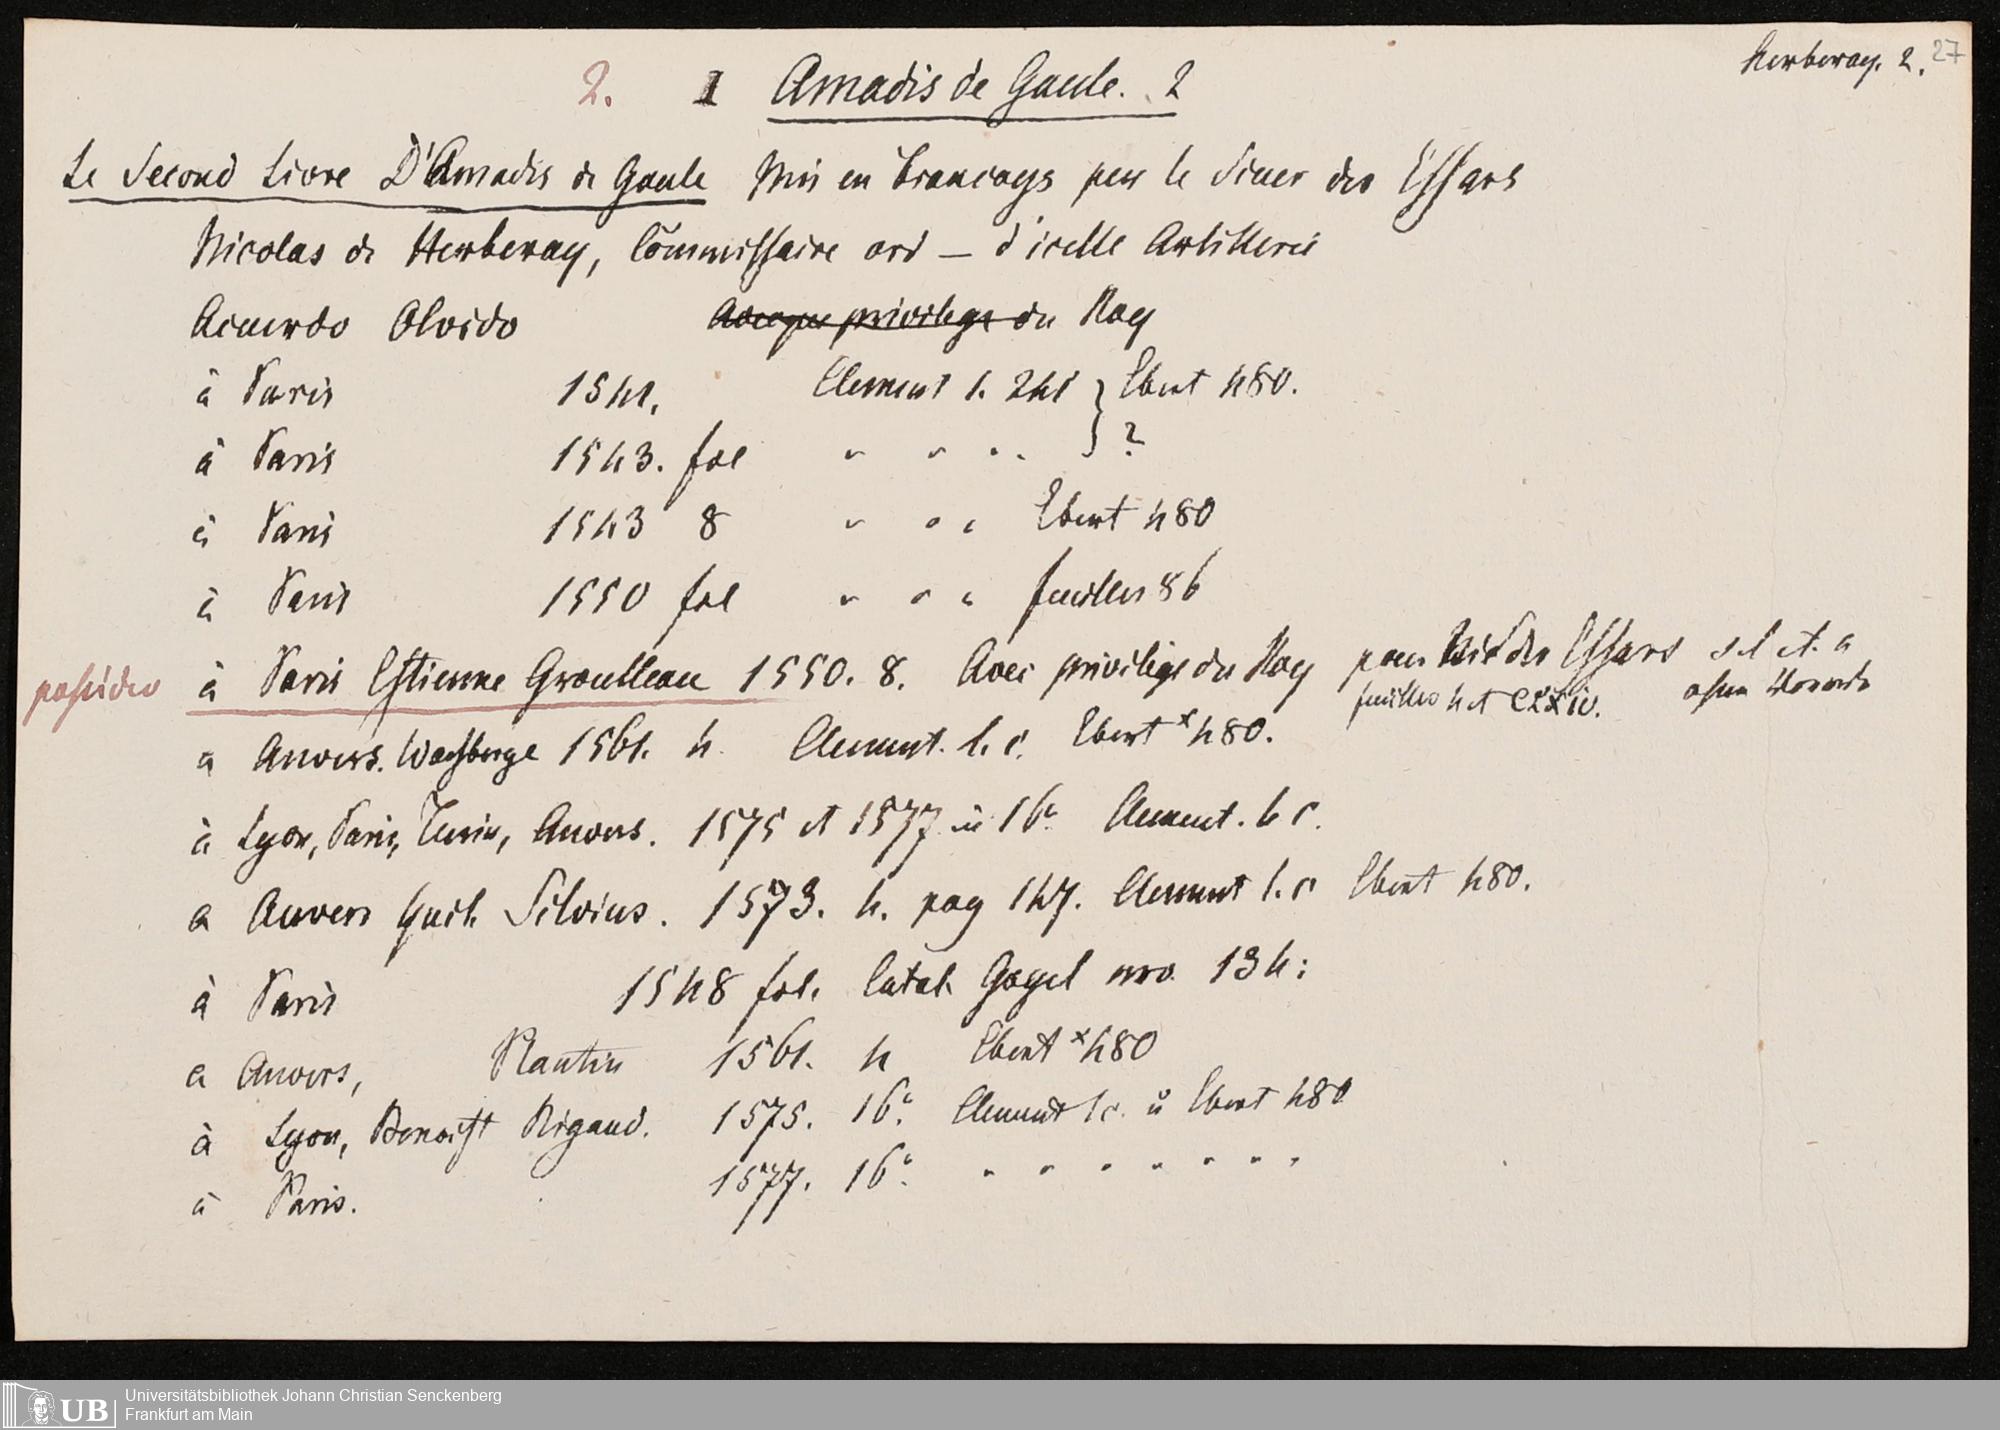 Herberay. 2. 27
2. 1 Amadis de Gaule. 2
Le Second Livre D'Amadis de Gaule Mis en francoys par le Sieur des Essars
Nicolas de Herberay, Commissaire ord — d'icelle Artillerie
Acuerdo Olvido Avecque privilege du Roy
à Paris 1541. Clement 1. 241 } Ebert 480.
à Paris 1543. fol " " " " } ?
à Paris 1543 8 " " " Ebert 480
à Paris 1550 fol " " " feuilles 86
possideo à Paris Estienne Groulleau 1550. 8. Avec privilege du Roy pour des Essars s. l. et. a
feuilles 4 et CXXiv.
a Anvers. Waesberge 1561. 4. Clement. l. c. Ebert * 480.
à Lyon, Paris, Turin, Anvers. 1575 et 1577 in 16° Clement. l. c.
a Anvers Guil. Silvius. 1573. 4. pag 147. Clement l. c Ebert 480.
à Paris 1548 fol. Catal. Gogel nro. 134:
a Anvers, Plantin 1561. 4 Ebert * 480
à Lyon, Benoist Rigaud. 1575. 16°. Clement l c. u Ebert 480
à Paris. 1577. 16°. " " " " " " "
UB Universitätsbibliothek Johann Christian Senckenberg
Frankfurt am Main